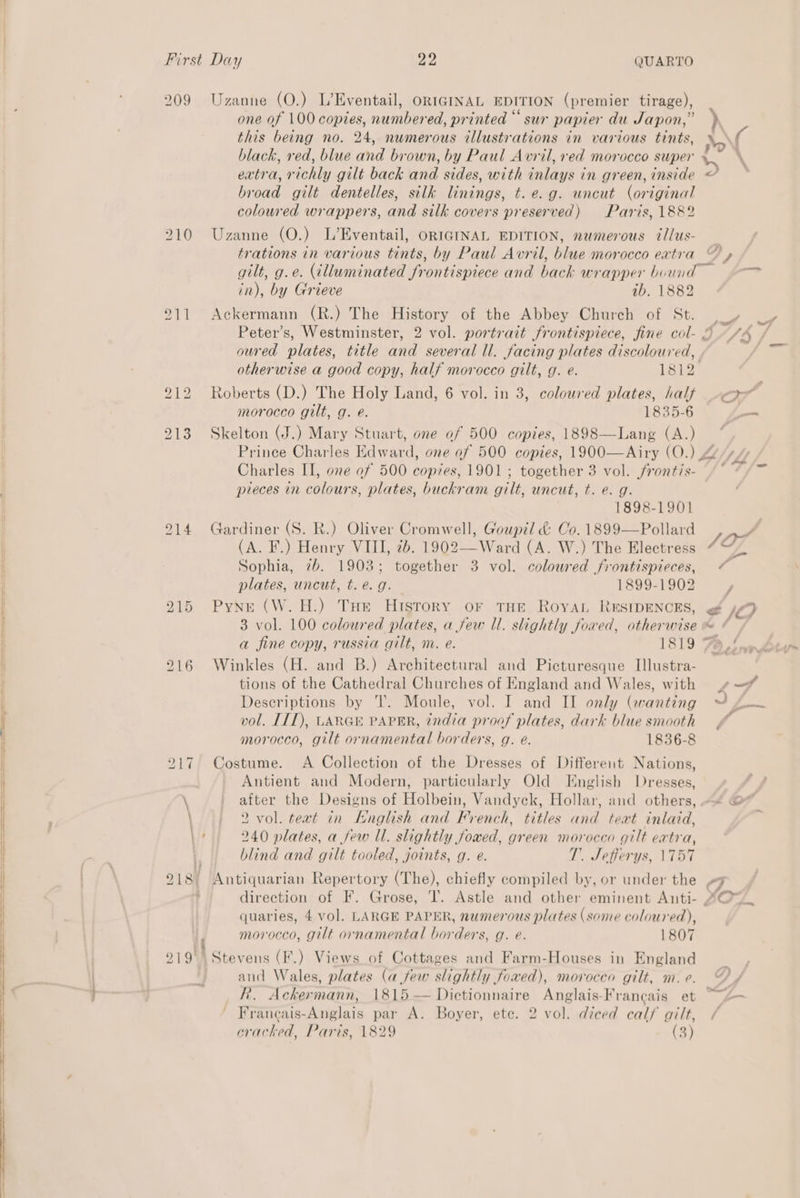 First Day 22 QUARTO
209 Uzanne (O.) L'Eventail, ORIGINAL EDITION (premier tirage),
one of 100 copies, numbered, printed "sur papier du Japon,"
this being no. 24, numerous illustrations in various tints,
black, red, blue and brown, by Paul Avril, red morocco super
extra, richly gilt back and sides, with inlays in green, inside
broad gilt dentelles, silk linings, t. e. g. uncut (original
coloured wrappers, and silk covers preserved) Paris, 1882
210 Uzanne (O.) L'Eventail, ORIGINAL EDITION, numerous illus-
trations in various tints, by Paul Avril, blue morocco extra
gilt, g. e. (illuminated frontispiece and back wrapper bound
in), by Grieve ib. 1882
211 Ackermann (R.) The History of the Abbey Church of St.
Peter's, Westminster, 2 vol. portrait frontispiece, fine col-
oured plates, title and several ll. facing plates discoloured,
otherwise a good copy, half morocco gilt, g. e. 1812
212 Roberts (D.) The Holy Land, 6 vol. in 3, coloured plates, half
morocco gilt, g. e. 1835-6
213 Skelton (J.) Mary Stuart, one of 500 copies, 1898—Lang (A.)
Prince Charles Edward, one of 500 copies, 1900—Airy (O.)
Charles II, one of 500 copies, 1901; together 3 vol. frontis-
pieces in colours, plates, buckram gilt, uncut, t. e. g.
1898-1901
214 Gardiner (S. R.) Oliver Cromwell, Goupil & Co. 1899—Pollard
(A. F.) Henry VIII, ib. 1902—Ward (A. W.) The Electress
Sophia, ib. 1903; together 3 vol. coloured frontispieces,
plates, uncut, t. e. g. 1899-1902
215 PYNE (W. H.) THE HISTORY OF THE ROYAL RESIDENCES,
3 vol. 100 coloured plates, a few ll. slightly foxed, otherwise
a fine copy, russia gilt, m. e. 1819
216 Winkles (H. and B.) Architectural and Picturesque Illustra-
tions of the Cathedral Churches of England and Wales, with
Descriptions by T. Moule, vol. I and II only (wanting
vol. III), LARGE PAPER, india proof plates, dark blue smooth
morocco, gilt ornamental borders, g. e. 1836-8
217 Costume. A Collection of the Dresses of Different Nations,
Antient and Modern, particularly Old English Dresses,
after the Designs of Holbein, Vandyck, Hollar, and others,
2 vol. text in English and French, titles and text inlaid,
240 plates, a few ll. slightly foxed, green morocco gilt extra,
blind and gilt tooled, joints, g. e. T. Jefferys, 1757
218 Antiquarian Repertory (The), chiefly compiled by, or under the
direction of F. Grose, T. Astle and other eminent Anti-
quaries, 4 vol. LARGE PAPER, numerous plates (some coloured),
morocco, gilt ornamental borders, g. e. 1807
219 Stevens (F.) Views of Cottages and Farm-Houses in England
and Wales, plates (a few slightly foxed), morocco gilt, m. e.
R. Ackermann, 1815—Dictionnaire Anglais-Français et
Français-Anglais par A. Boyer, etc. 2 vol. diced calf gilt,
cracked, Paris, 1829 (3)